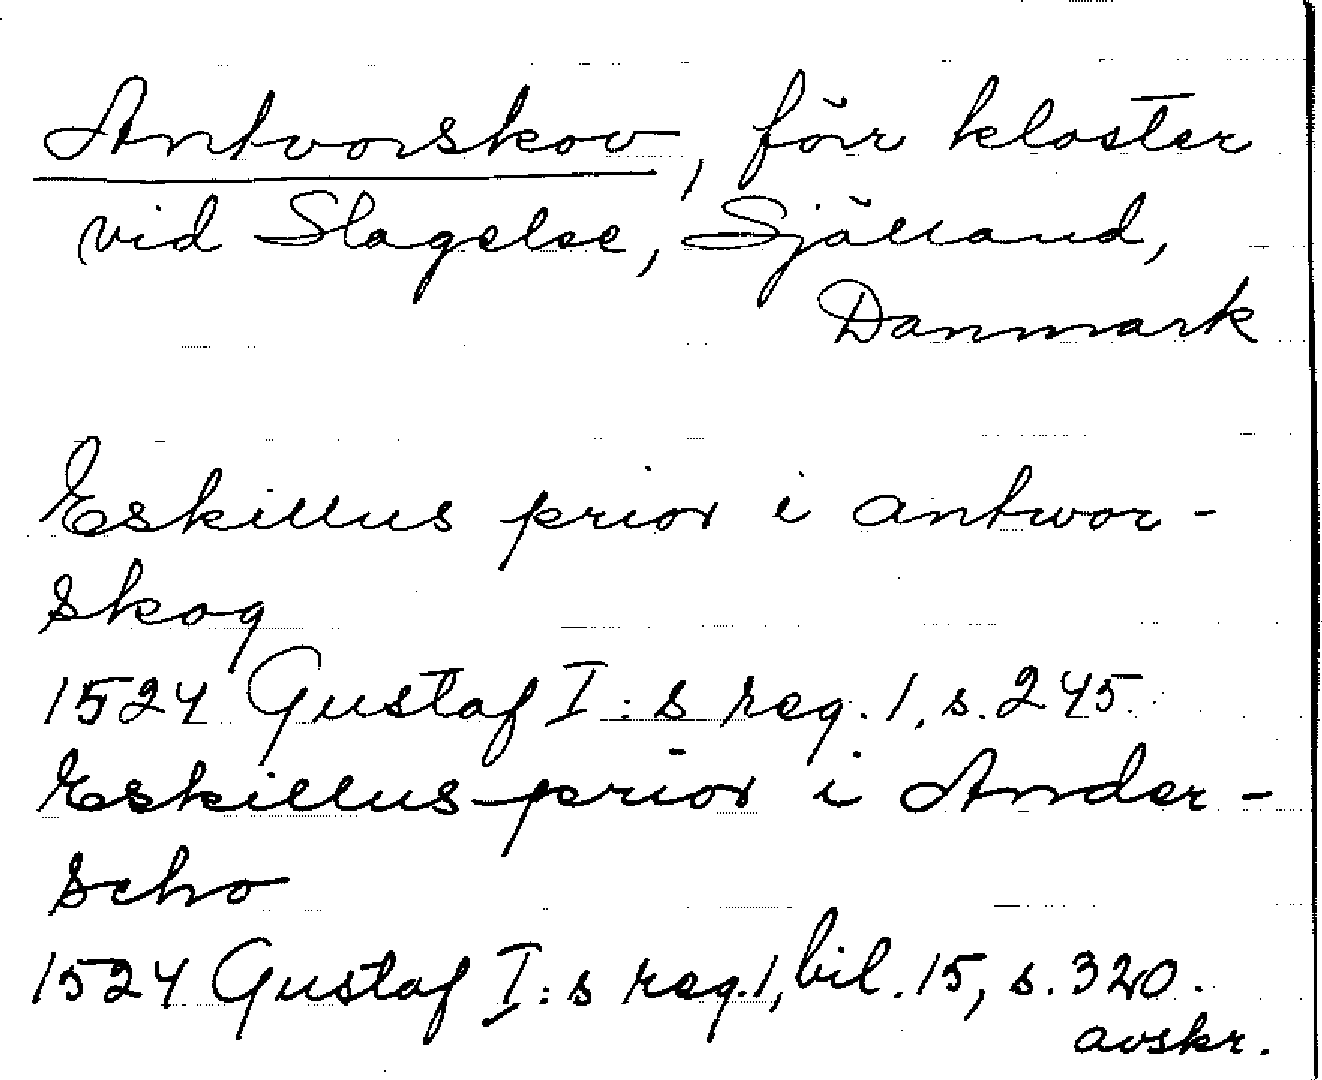 Antvorskov, förr kloster
vid Slagelse, Själland,
Danmark
Eskillus prior i antwor-
skog
1524 Gustaf I:s reg. 1, s. 245.
Eskillus prior i Ander-
scho
1524 Gustaf I:s reg. 1, bil. 15, s. 320.
avskr.